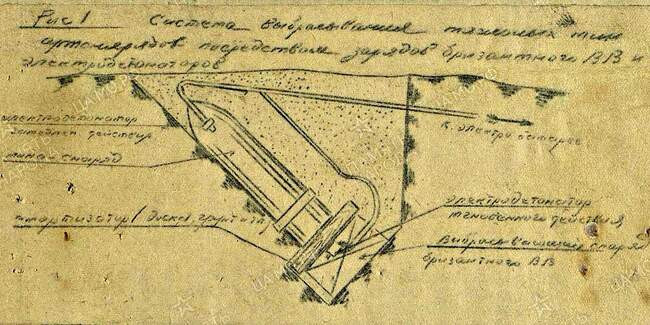 Рис 1
Система выбрасывания тяжелых мин
артснарядов посредством зарядов бризантного ВВ и
электродетонаторов
электродетонатор
действия
мина-снаряд
к электро батарее
амортизатор (доска, грунт и
электродетонатор
мгновенного действия
Выбрасывающие снаряд
бризантного ВВ